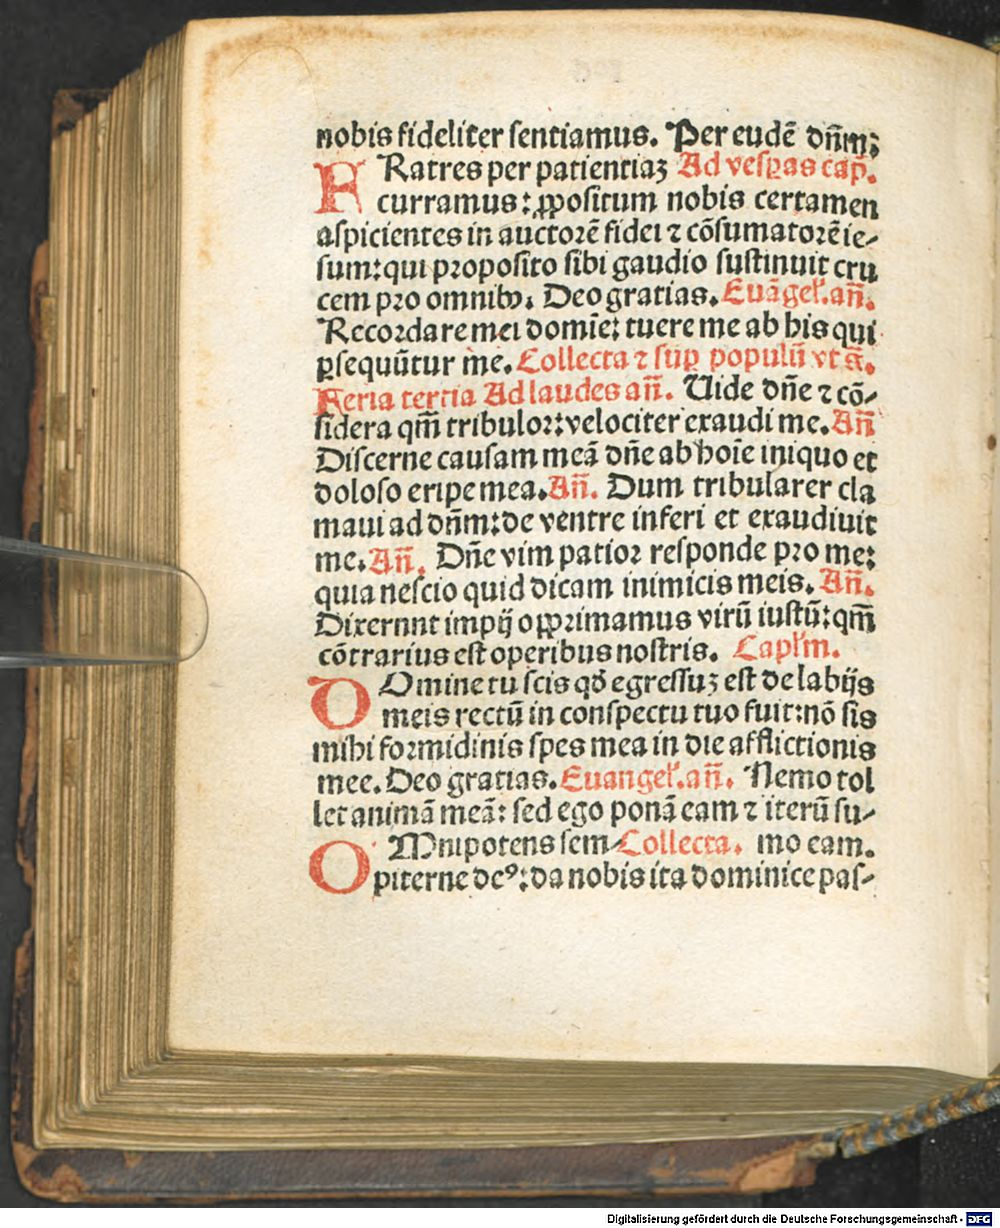 nobis fideliter sentiamus. Per eudē dn̄m;
FRatres per patientiaꝫ Ad vesꝑas cap̄.
curramus: ꝓpositum nobis certamen
aspicientes in auctorē fidei ⁊ cōsumatorē ie-
sum: qui proposito sibi gaudio sustinuit cru
cem pro omnibꝰ. Deo gratias. Euāgel̄. an̄.
Recordare mei domīe: tuere me ab his qui
ꝑsequūtur me. Collecta ⁊ suꝑ populū vt s̄.
Feria tertia Ad laudes an̄. Uide dn̄e ⁊ cō-
sidera qm̄ tribulor: velociter exaudi me. An̄
Discerne causam meā dn̄e ab hoīe iniquo et
doloso eripe mea. An̄. Dum tribularer cla
maui ad dn̄m: de ventre inferi et exaudiuit
me. An̄. Dn̄e vim patior responde pro me:
quia nescio quid dicam inimicis meis. An̄.
Dixernnt impij oꝓprimamus virū iustū: qm̄
cōtrarius est operibus nostris. Capl̄m.
DOmine tu scis qd̄ egressuꝫ est de labijs
meis rectū in conspectu tuo fuit: nō sis
mihi formidinis spes mea in die afflictionis
mee. Deo gratias. Euangel̄. an̄. Nemo tol
let animā meā: sed ego ponā eam ⁊ iterū su-
OMnipotens sem- Collecta. mo eam.
piterne deꝰ: da nobis ita dominice pas-
Digitalisierung gefördert durch die Deutsche Forschungsgemeinschaft - DFG